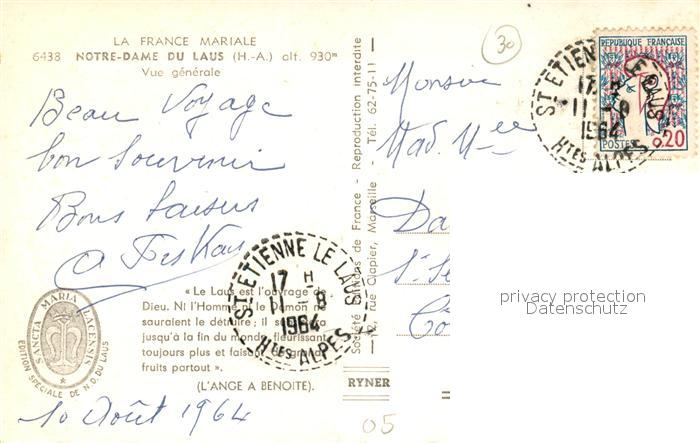 LA FRANCE MARIALE
6438 NOTRE-DAME DU LAUS (H.-A.) alt. 930m
Vue générale
Beau Voyage
bon Souvenir
Bons baisers
« Le Laus est l'ouvrage de
Dieu. Ni l'Homme ni le Démon ne
sauraient le détruire; il subsistera
jusqu'à la fin du monde, fleurissant
toujours plus et faisant de grands
fruits partout ».
(L'ANGE A BENOITE).
SANCTA MARIA LACENSIS
EDITION SPÉCIALE DE N.D. DU LAUS
10 Août 1964
ST ETIENNE LE LAUS
17 H
11 - 8
1964
Htes ALPES
Reproduction interdite
Marseille - Tél. 62-75-11
RYNER
30
REPUBLIQUE FRANÇAISE
POSTES 0,20
ST ETIENNE LE LAUS
17 H
11 - 8
1964
Htes ALPES
Monsieur
Mad. Mlle
Da
privacy protection
Datenschutz
05